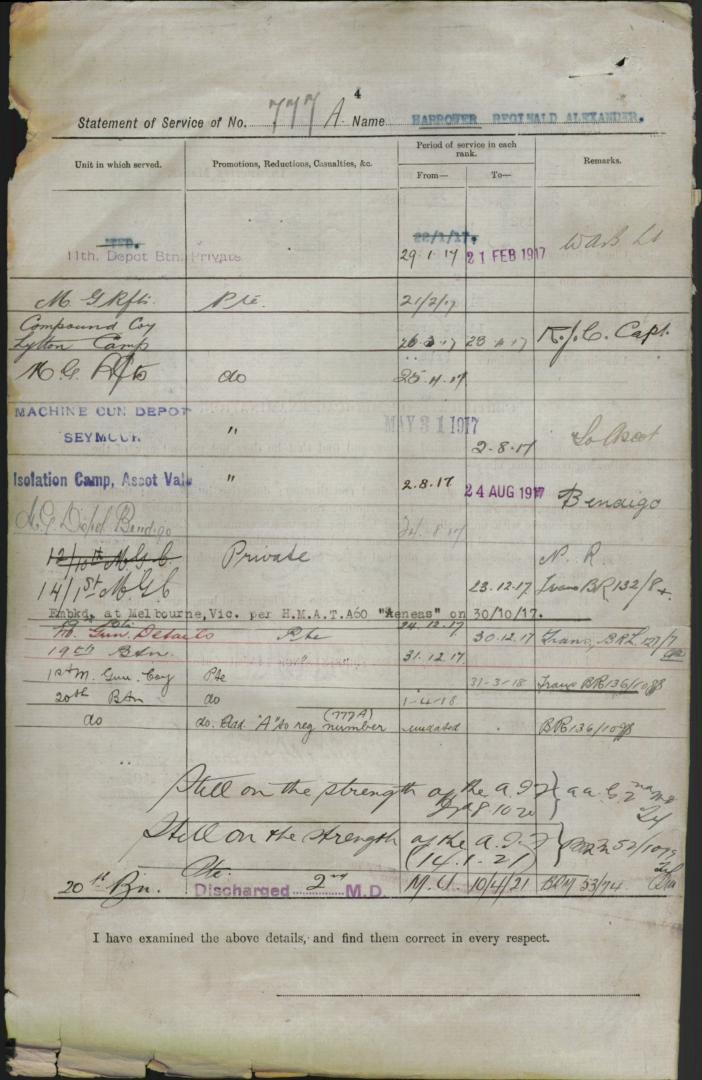 4
Statement of Service of No. 777 A. Name HARROWER REGINALD ALEXANDER.
Unit in which served. Promotions, Reductions, Casualties, &c. Period of service in each rank. Remarks.
From— To—
22/1/17.
11th. Depot Btn. Private 29.1.17 21 FEB 1917
M. G Rfts. Pte. 21/2/17
Compound Coy
Lytton Camp 26.3.17 23.4.17 Capt.
M. G. Rfts do 25.4.17
MACHINE GUN DEPOT
SEYMOUR " MAY 31 1917 2-8-17
Isolation Camp, Ascot Vale " 2.8.17 24 AUG 1917 Bendigo
M.G Depot Bendigo 24.8.17
12/10th M.G.C. Private N. R
14/1st M G C 23.12.17 Trans BR 132/8
Embkd. at Melbourne, Vic. per H.M.A.T. A60 "Aeneas" on 30/10/17.
Gun. Details Pte 24.12.17 30.12.17 Trans, BRL 127/7
19th Btn. " 31.12.17
1st M. Gun. Coy Pte 31-3-18 Trans BR 136/10
20th Btn do 1-4-18
do do. Add "A" to reg number (777A) undated BR 136/10
Still on the strength of the A.I.F
Still on the strength of the A.I.F
(14.1.21)
Pte.
20th Bn. Discharged 2nd M.D. M.U. 10/4/21 53/74
I have examined the above details, and find them correct in every respect.